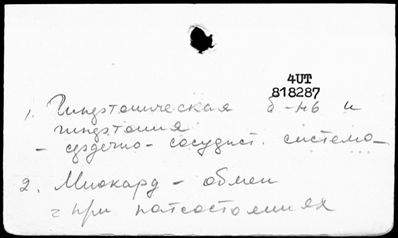 4UT
818287
1. Гипертоническая б-нь и
гипертония
- сердечно-сосудист. система -
2. Миокард - обмен
при патсостояниях